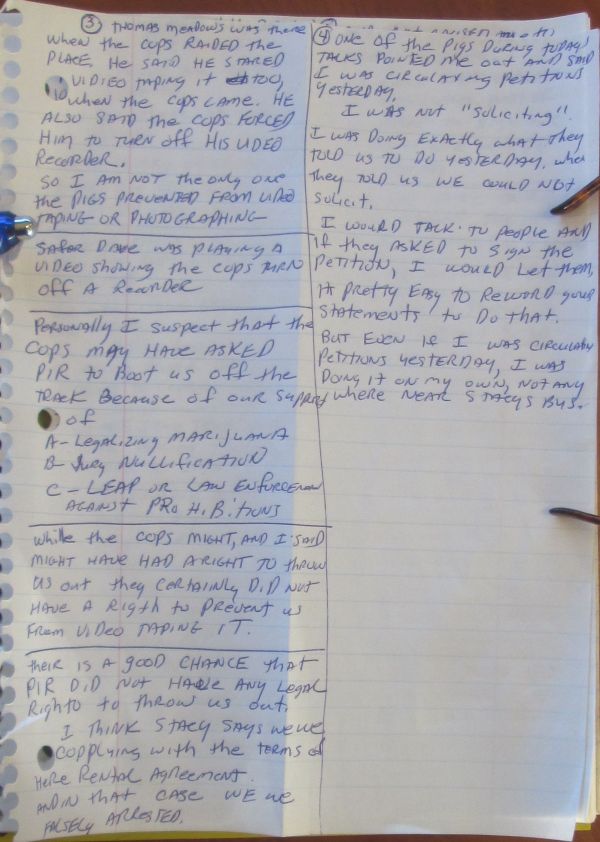 ③ THOMAS MEADOWS WAS there
when the COPS RAIDED the
PLACE, He SAID HE STARED
VIDIEO TAPING IT TOO,
when the COPS CAME. HE
ALSO SAID the COPS FORCED
HIM to TURN off HIS VIDEO
RECORDER.
SO I AM NOT the only one
the PIGS PREVENTED FROM VIDEO
TAPING OR PHOTOGRAPHING
SAFER DAVE WAS PLAYING A
VIDEO SHOWING the COPS TURN
OFF A RECORDER
PERSONALLY I SUSPECT that the
COPS MAY HAVE ASKED
PIR to BOOT US OFF the
TRACK BECAUSE of OUR SUPPORT
of
A- LEGALIZING MARIJUANA
B- JURY NULLIFICATION
C - LEAP OR LAW ENFORCEMENT
AGAINST PROHIBITIONS
while the COPS MIGHT, AND I SAID
MIGHT HAVE HAD A RIGHT TO THROW
US OUT they CERTAINLY DID NOT
HAVE A RIGTH to PREVENT US
FROM VIDEO TAPING IT.
THEIR IS A GOOD CHANCE that
PIR DID NOT HAVE ANY LEGAL
RIGHTO to THROW US OUT,
I THINK STACY SAYS WE WE
COPPLYING with the TERMS of
HERE RENTAL AGREEMENT.
AND IN that CASE WE WE
FALSELY ARRESTED.
④ ONE of the PIGS DURING TODAYS
TALKS POINTED ME OUT AND SAID
I WAS CIRCULARING PETITIONS
YESTERDAY,
I WAS NOT "SOLICITING".
I WAS DOING EXACTLY WHAT they
TOLD US TO DO YESTERDAY. when
they TOLD US WE COULD NOT
SOLICIT,
I WOURD TALK TO PEOPLE AND
IF they ASKED TO SIGN the
PETITION, I WOURD LET THEM,
ITS PRETTY EASY TO REWORD YOUR
STATEMENTS to DO THAT.
BUT EVEN IF I WAS CIRCULATING
PETITIONS YESTERDAY, I WAS
DOING IT ON MY OWN, NOT ANY
WHERE NEAR STACYS BUS.